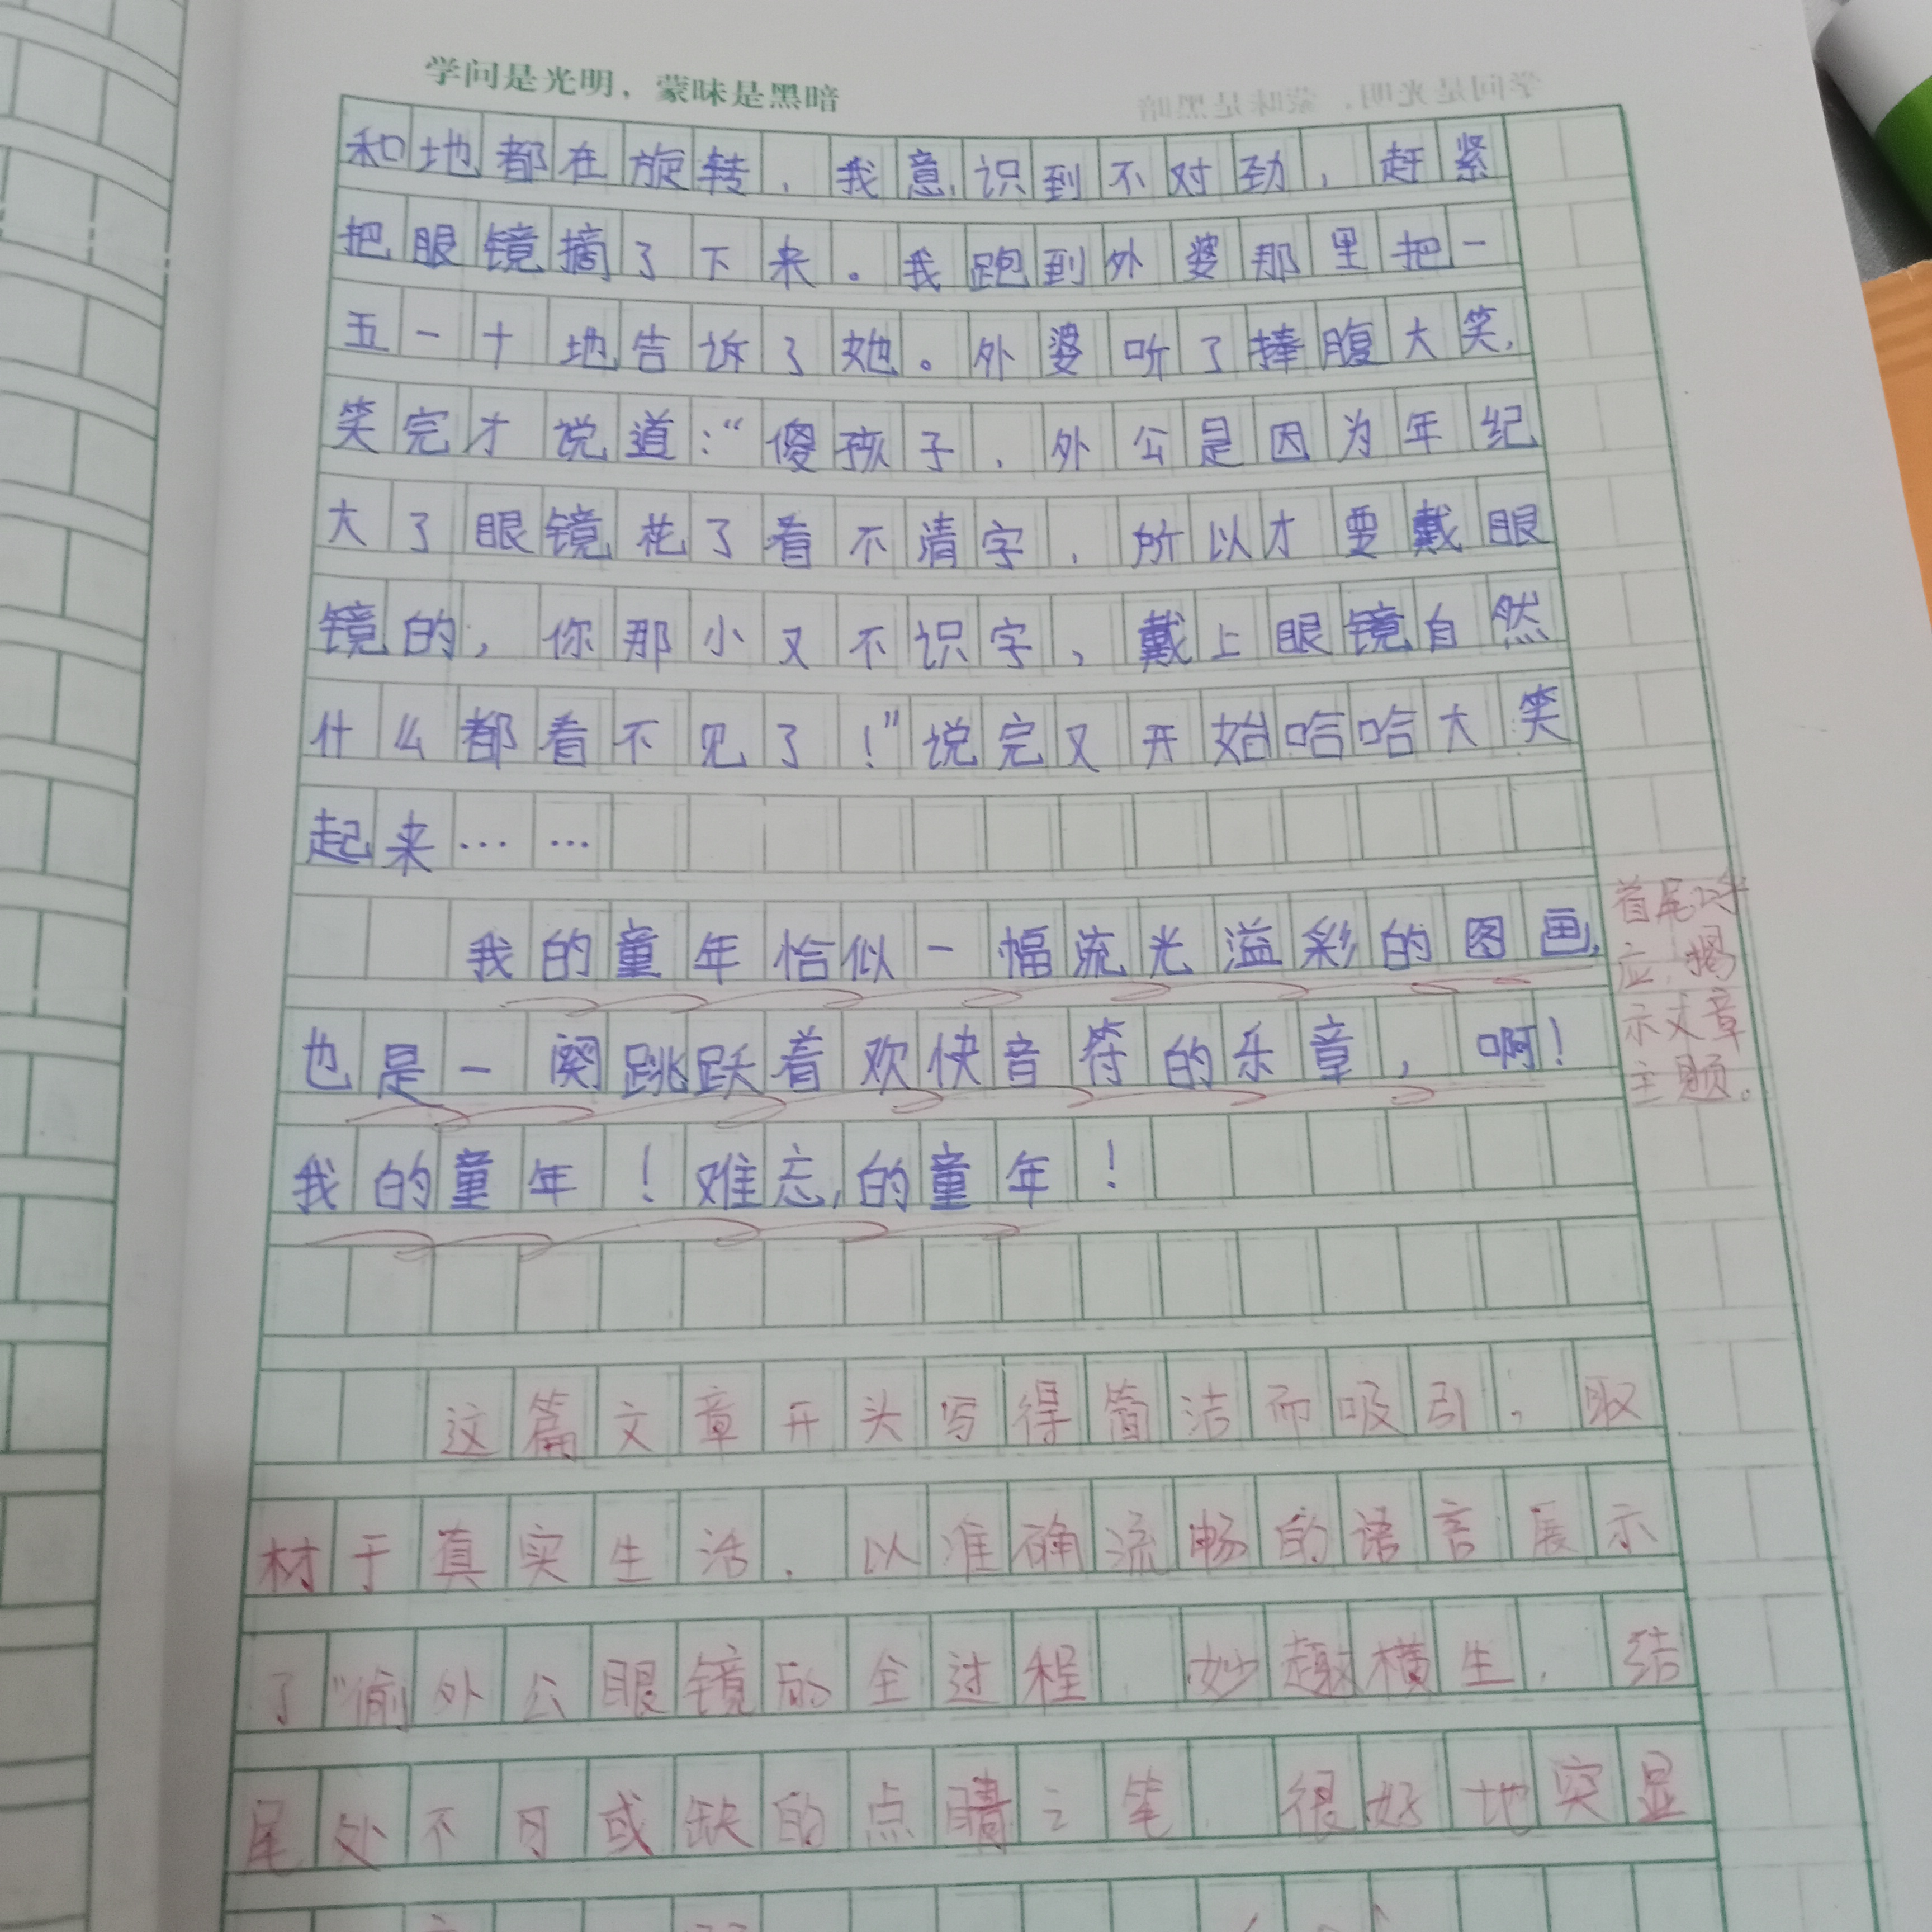 学问是光明，蒙昧是黑暗
和地都在旋转，我意识到不对劲，赶紧
把眼镜摘了下来。我跑到外婆那里把一
五一十地告诉了她。外婆听了捧腹大笑，
笑完才说道：“傻孩子，外公是因为年纪
大了眼镜花了看不清字，所以才要戴眼
镜的，你那小又不识字，戴上眼镜自然
什么都看不见了！”说完又开始哈哈大笑
起来……
我的童年恰似一幅流光溢彩的图画，
也是一阕跳跃着欢快音符的乐章，啊！
我的童年！难忘的童年！
首尾呼
应，揭
示文章
主题。
这篇文章开头写得简洁而吸引，取
材于真实生活，以准确流畅的语言展示
了“偷外公眼镜的全过程，妙趣横生，结
尾处不可或缺的点睛之笔，很好地突显